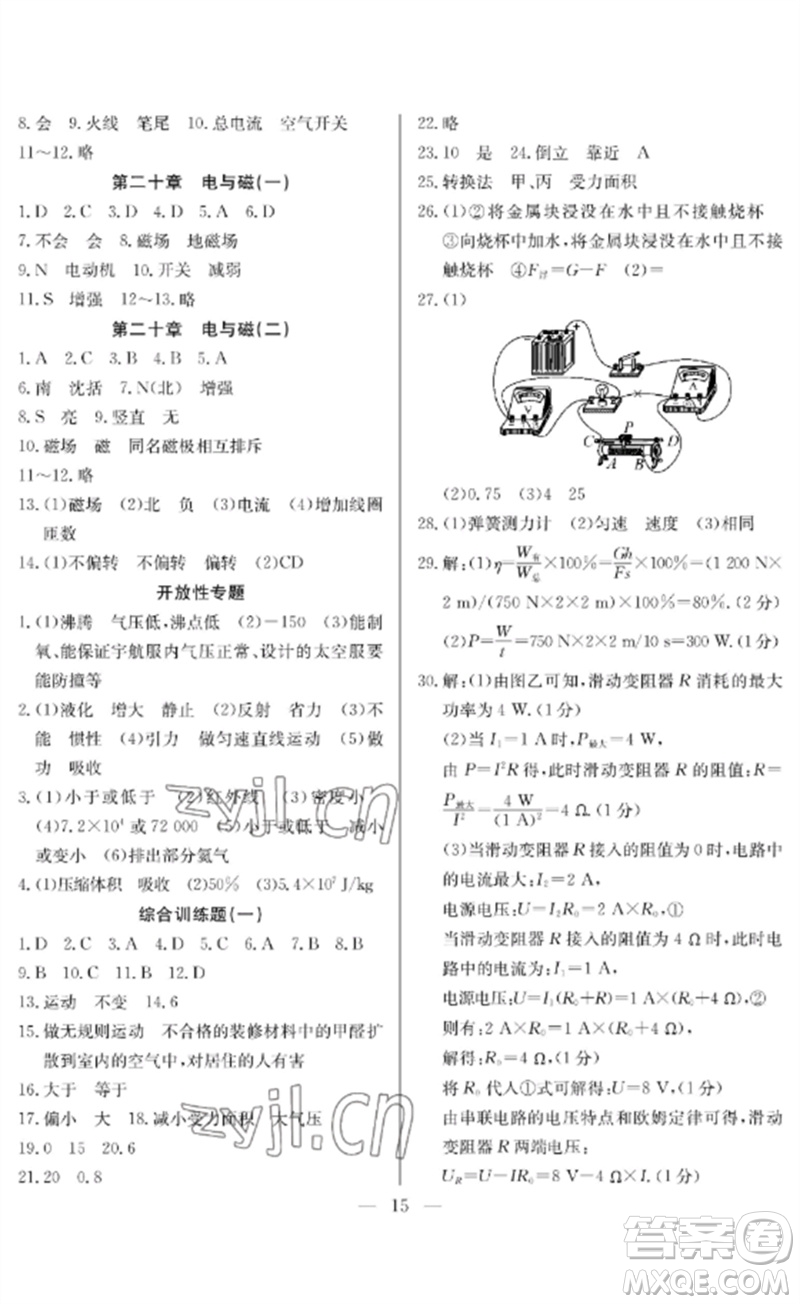 8.会　9.火线　笔尾　10.总电流　空气开关
11～12.略
第二十章　电与磁(一)
1.D　2.C　3.D　4.D　5.A　6.D
7.不会　会　8.磁场　地磁场
9.N　电动机　10.开关　减弱
11.S　增强　12～13.略
第二十章　电与磁(二)
1.A　2.C　3.D　4.B　5.A
6.南　沈括　7.N(北)　增强
8.S　亮　9.竖直　无
10.磁场　磁　同名磁极相互排斥
11～12.略
13.(1)磁场　(2)北　负　(3)电流　(4)增加线圈
匝数
14.(1)不偏转　不偏转　偏转　(2)CD
开放性专题
1.(1)沸腾　气压低,沸点低　(2)－150　(3)能制
氧、能保证宇航服内气压正常、设计的太空服要
能防撞等
2.(1)液化　增大　静止　(2)反射　省力　(3)不
能　惯性　(4)引力　做匀速直线运动　(5)做
功　吸收
3.(1)小于或低于　(2)红外线　(3)密度小
(4)7.2×10⁴或72 000　(5)小于或低于　减小
或变小　(6)排出部分氦气
4.(1)压缩体积　吸收　(2)50%　(3)5.4×10⁷ J/kg
综合训练题(一)
1.D　2.C　3.A　4.D　5.D　6.D　7.B　8.B
9.B　10.C　11.A　12.D
13.运动　不变　14.6
15.做无规则运动　不合格的装修材料中的甲醛扩
散到室内的空气中,对居住的人有害
16.大于　等于
17.偏小　大　18.减小受力面积　大气压
19.0　15　20.6
21.20　0.8
22.略
23.10　是　24.倒立　靠近　A
25.转换法　甲、丙　受力面积
26.(1)②将金属块浸没在水中且不接触烧杯
③向烧杯中加水,将金属块浸没在水中且不接
触烧杯　④F浮=G－F　(2)=
27.(1)
+
V
A
C
P
D
A
B
(2)0.75　(3)4　25
28.(1)弹簧测力计　(2)匀速　速度　(3)相同
29.解:(1)η=W有/W总×100%=Gh/Fs×100%=(1 200 N×
2 m)/(750 N×2×2 m)×100%=80%.(2分)
(2)P=W/t=750 N×2×2 m/10 s=300 W.(2分)
30.解:(1)由图乙可知,滑动变阻器 R 消耗的最大
功率为 4 W.(1分)
(2)当 I₁=1 A时,P最大=4 W,
由 P=I²R得,此时滑动变阻器 R 的阻值:R=
P最大/I²=4 W/(1 A)²=4 Ω.(1分)
(3)当滑动变阻器 R 接入的阻值为0时,电路中
的电流最大:I₂=2 A,
电源电压:U=I₂R₀=2 A×R₀,①
当滑动变阻器 R 接入的阻值为 4 Ω时,此时电
路中的电流为:I₁=1 A,
电源电压:U=I₁(R₀+R)=1 A×(R₀+4 Ω),②
则有:2 A×R₀=1 A×(R₀+4 Ω),
解得:R₀=4 Ω,(1分)
将 R₀ 代人①式可解得:U=8 V,(1分)
由串联电路的电压特点和欧姆定律可得,滑动
变阻器 R 两端电压:
U_R=U－IR₀=8 V－4 Ω×I.(1分)
zyjl.cn
zyjl.cn
15
答案卷
MXQE.COM